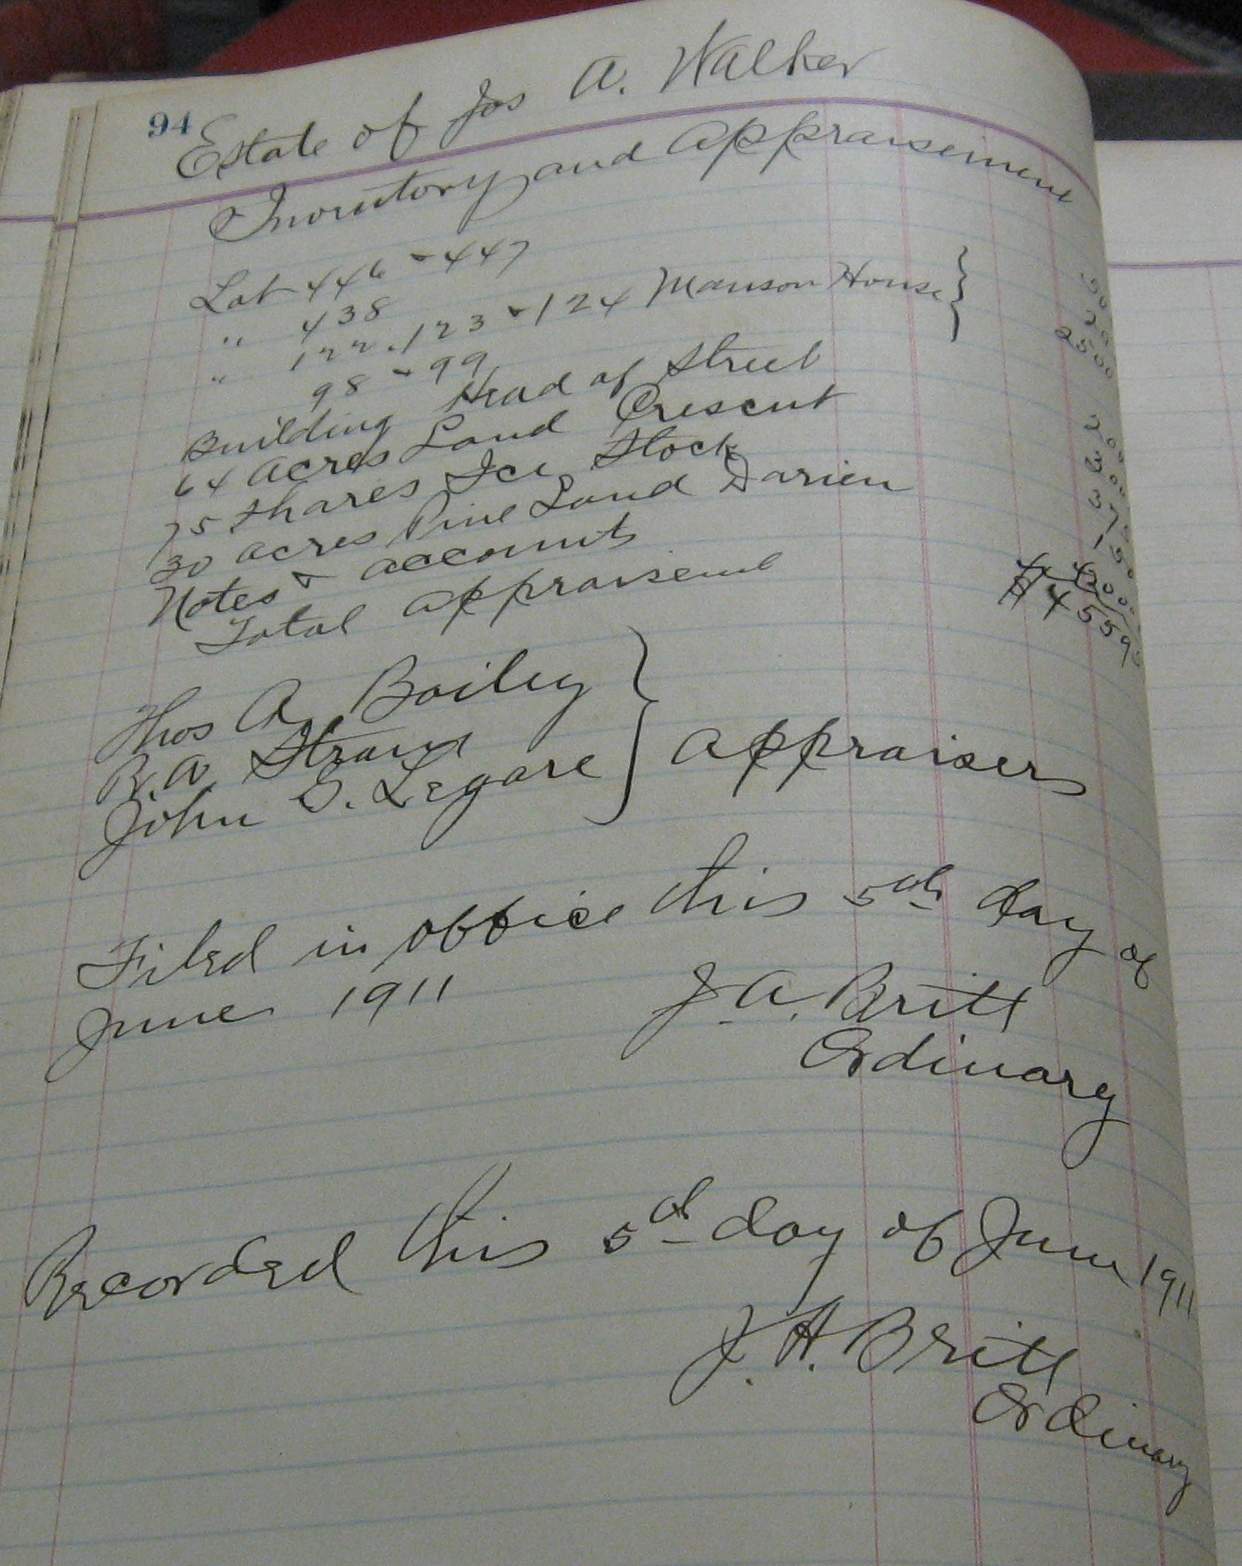 94
Estate of Jos A. Walker
Inventory and appraisement
Lot 446 - 447
" 438
" 122. 123 & 124 Manson House
98 - 99
Building Head of Street
64 acres Land Crescent
75 Shares Ice Stock
30 acres Pine Land Darien
Notes & accounts
Total appraisement
Thos A. Bailey
John S. Legare
appraisers
Filed in office this 5th day of
June 1911
J. A. Britt
Ordinary
Recorded this 5th day of June 1911
J. H. Britt
Ordinary